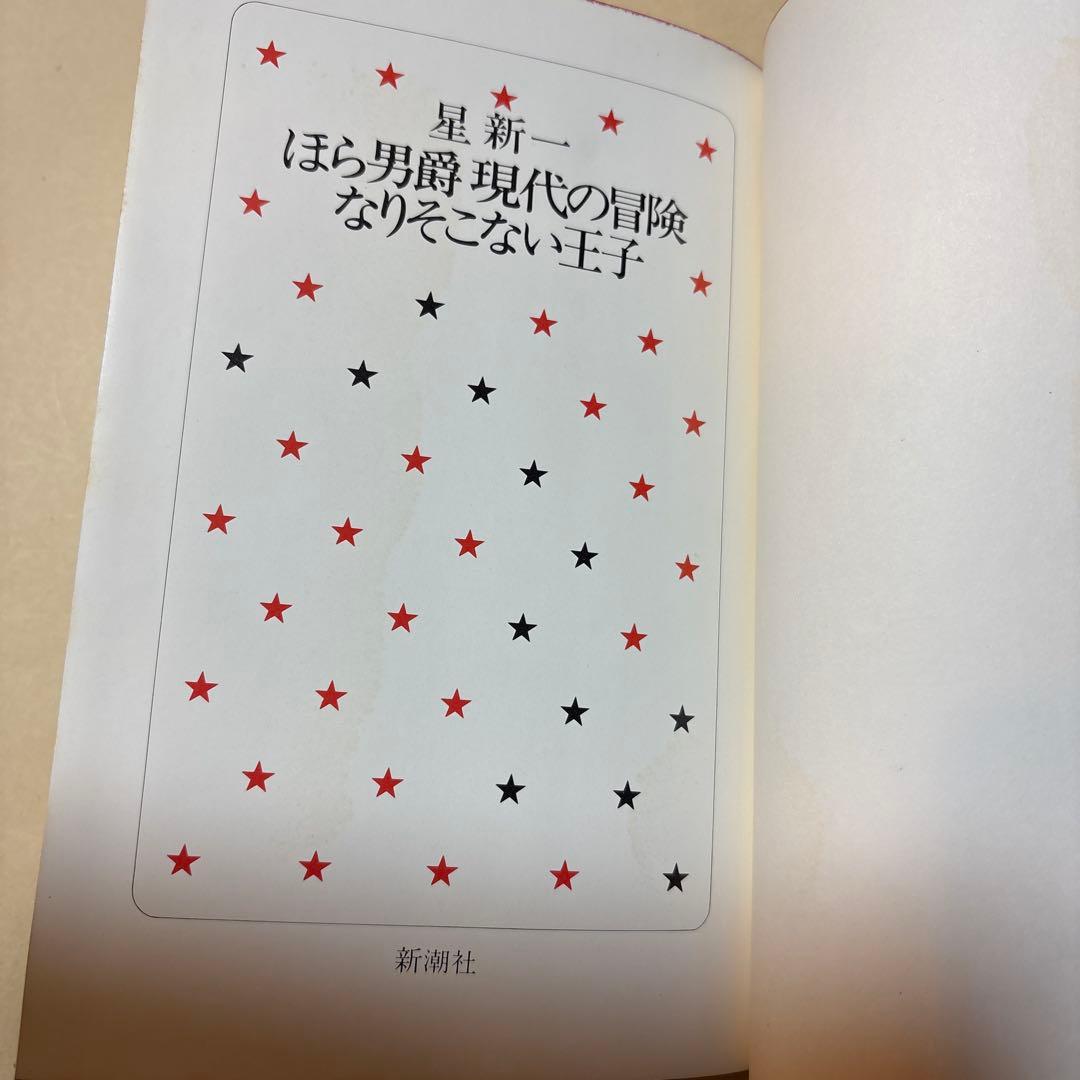 星 新一
ほら男爵 現代の冒険
なりそこない王子
新潮社